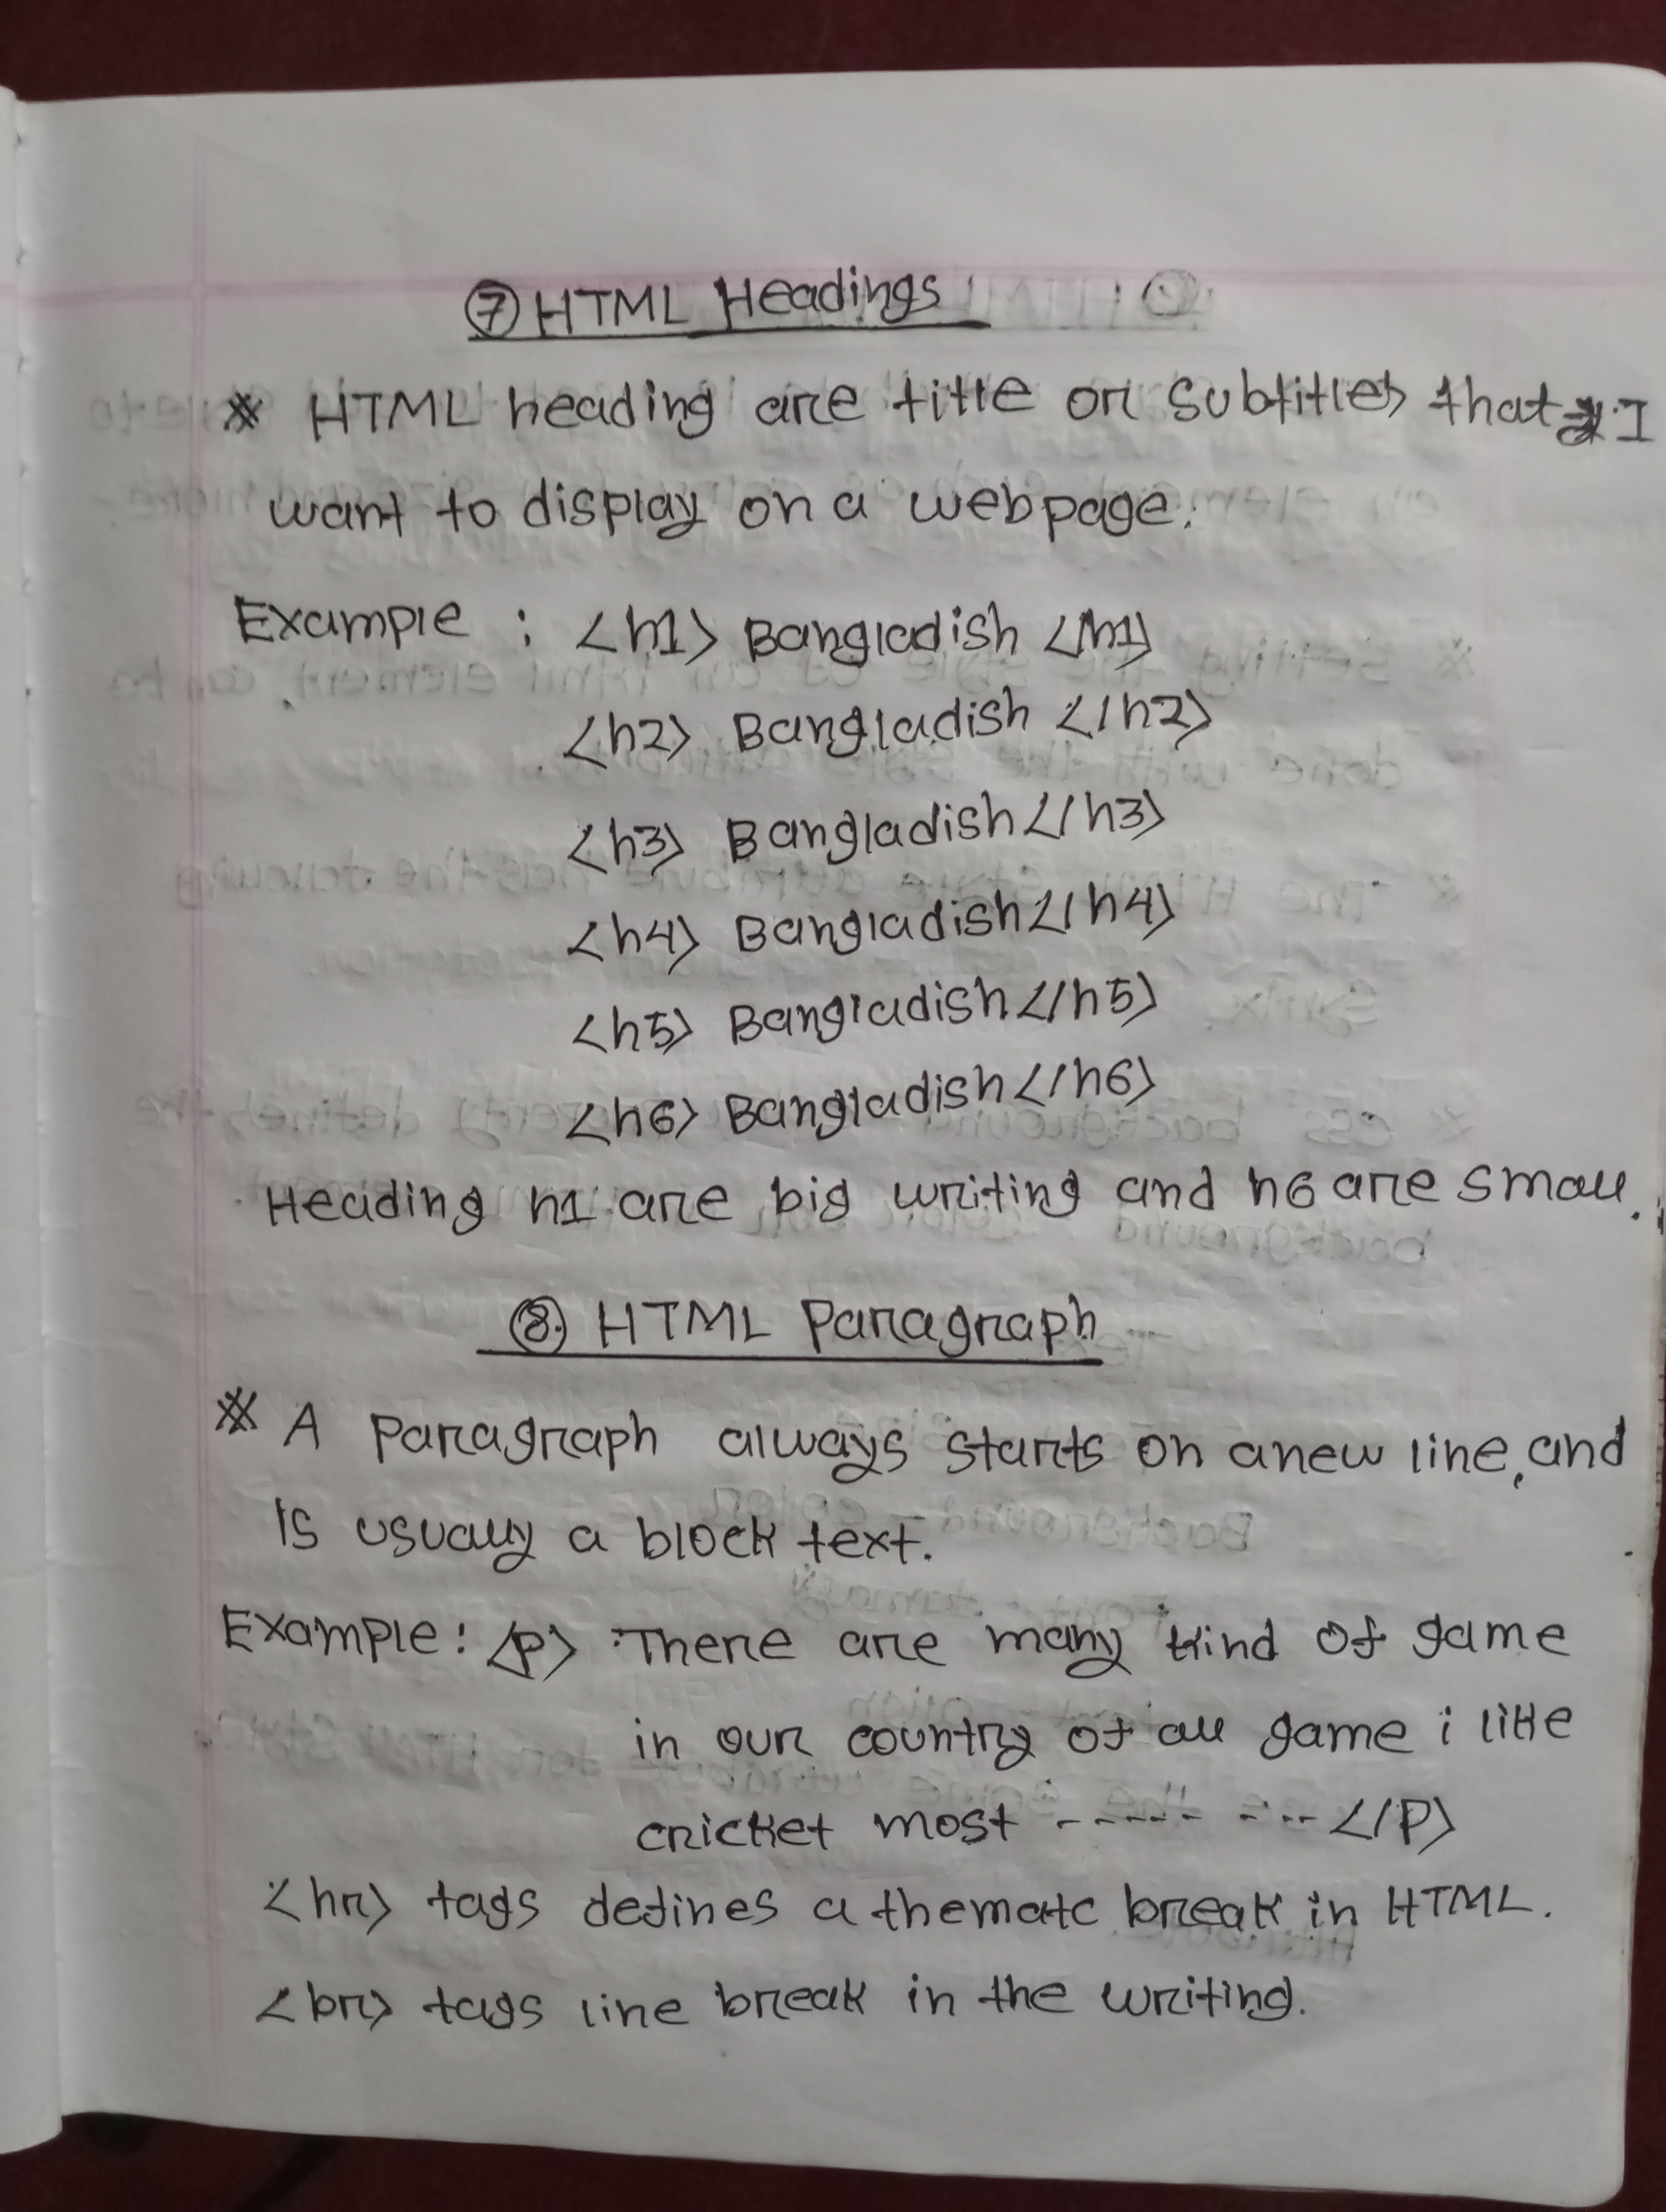 ⑦ HTML Headings
* HTML heading are title or subtitles that I
want to display on a webpage.
Example : <h1> Bangladish </h1>
<h2> Bangladish </h2>
<h3> Bangladish </h3>
<h4> Bangladish </h4>
<h5> Bangladish </h5>
<h6> Bangladish </h6>
Heading h1 are big writing and h6 are small.
⑧ HTML Paragraph
* A Paragraph always starts on a new line, and
is usually a block text.
Example : <p> There are many kind of game
in our country of all game i like
cricket most ----- --- </P>
<hr> tags defines a thematc break in HTML.
<br> tags line break in the writing.